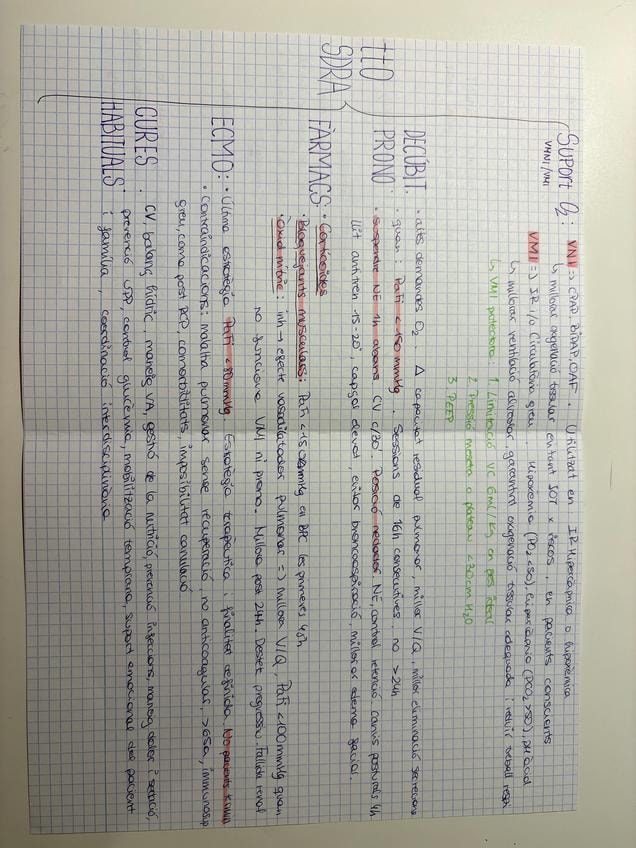 TTO
SDRA
SUPORT O₂: VNI => CPAP, BIPAP, OAF. Utilitzat en IR Hipercàpnica o hipoxèmica
VMNI/VMI
↳ millorar oxigenació tissular evitant IOT x riscos, en pacients conscients
VMI => IR i/o circulatòria greu. Hipoxèmia (PO₂<50), hipercàpnia (PCO₂>50), pH àcid
↳ millorar ventilació alveolar, garantint oxigenació tissular adequada i reduir treball respi
↳ VMI protectora: 1 Limitació VC 6ml/Kg en pes ideal
2 Pressió meseta o plateau <30cm H₂O
3 PEEP
DECÚBIT PRONO:
• altes demandes O₂. Δ capacitat residual pulmonar, millor V/Q, millor eliminació secrecions
quan: PaFi <150 mmHg. Sessions de 16h consecutives, no >24h
• Suspendre NE 1h abans CV c/30'. Posició nedador. NE, control retenció, canvis posturals 4h
llit antitren 15-20°, capçal elevat, evitar broncoaspiració, millorar edema facial.
FÀRMACS: • Corticoides
• Bloquejants musculars: PaFi <150mmHg en BPC les primeres 48h
• Òxid nítric: inh → efecte vasodilatador pulmonar => millora V/Q, PaFi <100mmHg quan
no funciona VM ni prono. Millora post 24h. Destet progressiu. Fallida renal
ECMO: • Última estratègia PaFi <80mmHg. Estratègia terapèutica i finalitat definida.
• Contraindicacions: malaltia pulmonar sense recuperació, no anticoagular, >65a, immunosup
greu, coma post PCR, comorbilitats, impossibilitat canulació
CURES HABITUALS: • CV balanç hídric, maneig VA, gestió de la nutrició, prevenció infeccions, maneig dolor i sedació,
prevenció UPP, control glucèmia, mobilització temprana, suport emocional del pacient
i família, coordinació interdisciplinària